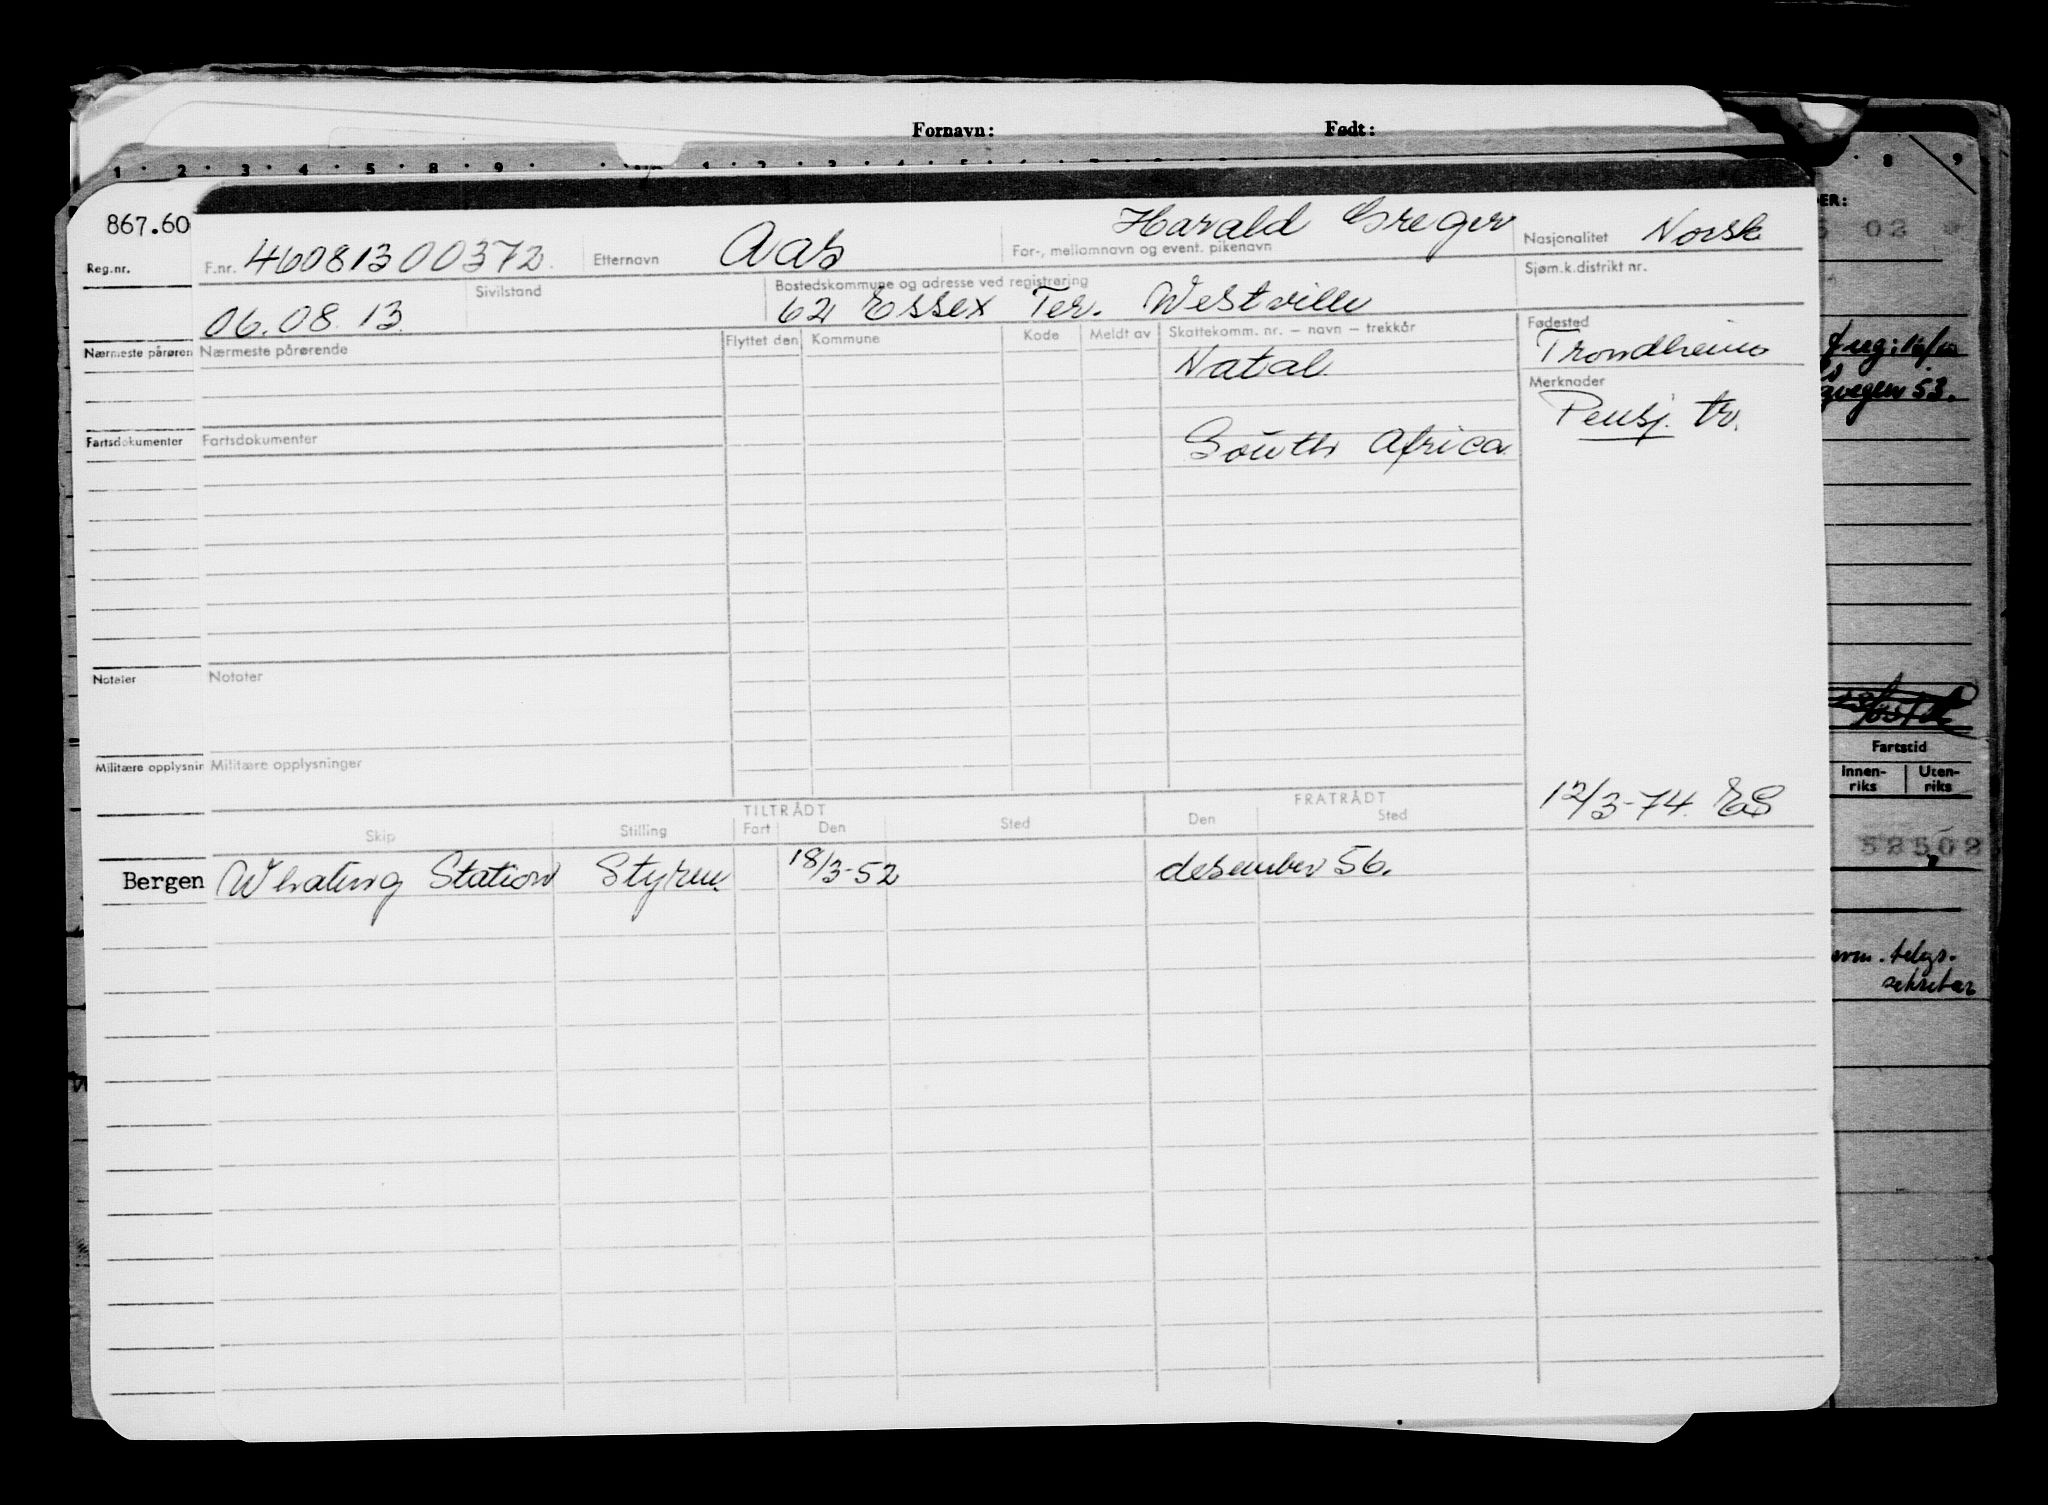 Fornavn: Født:
1 . 2 . 3 . 4 . 5 . 8 . 9 8 9
867.60
Reg.nr.
F.nr. 460813 00372. Etternavn Aas Harald Greger
For-, mellomnavn og event. pikenavn
Nasjonalitet Norsk
06.08.13
Sivilstand
Bostedskommune og adresse ved registrering
62 Essex Ter. Westville
Sjøm.k.distrikt nr.
Nærmeste pårøren Nærmeste pårørende
Flyttet den Kommune Kode Meldt av Skattekomm. nr. – navn – trekkår
Natal
South Africa
Fødested
Trondheim
Merknader
Pensj. tr.
Fartsdokumenter Fartsdokumenter
Notater Notater
Militære opplysnin Militære opplysninger
12/3-74. ES
TILTRÅDT FRATRÅDT
Skip Stilling Fart Den Sted Den Sted
Bergen Whaling Station Styrm. 18/3-52 desember 56.
ER:
02
vegen 53.
Fartstid
Innen-
riks
Uten-
riks
52502
telegr.
sekretær